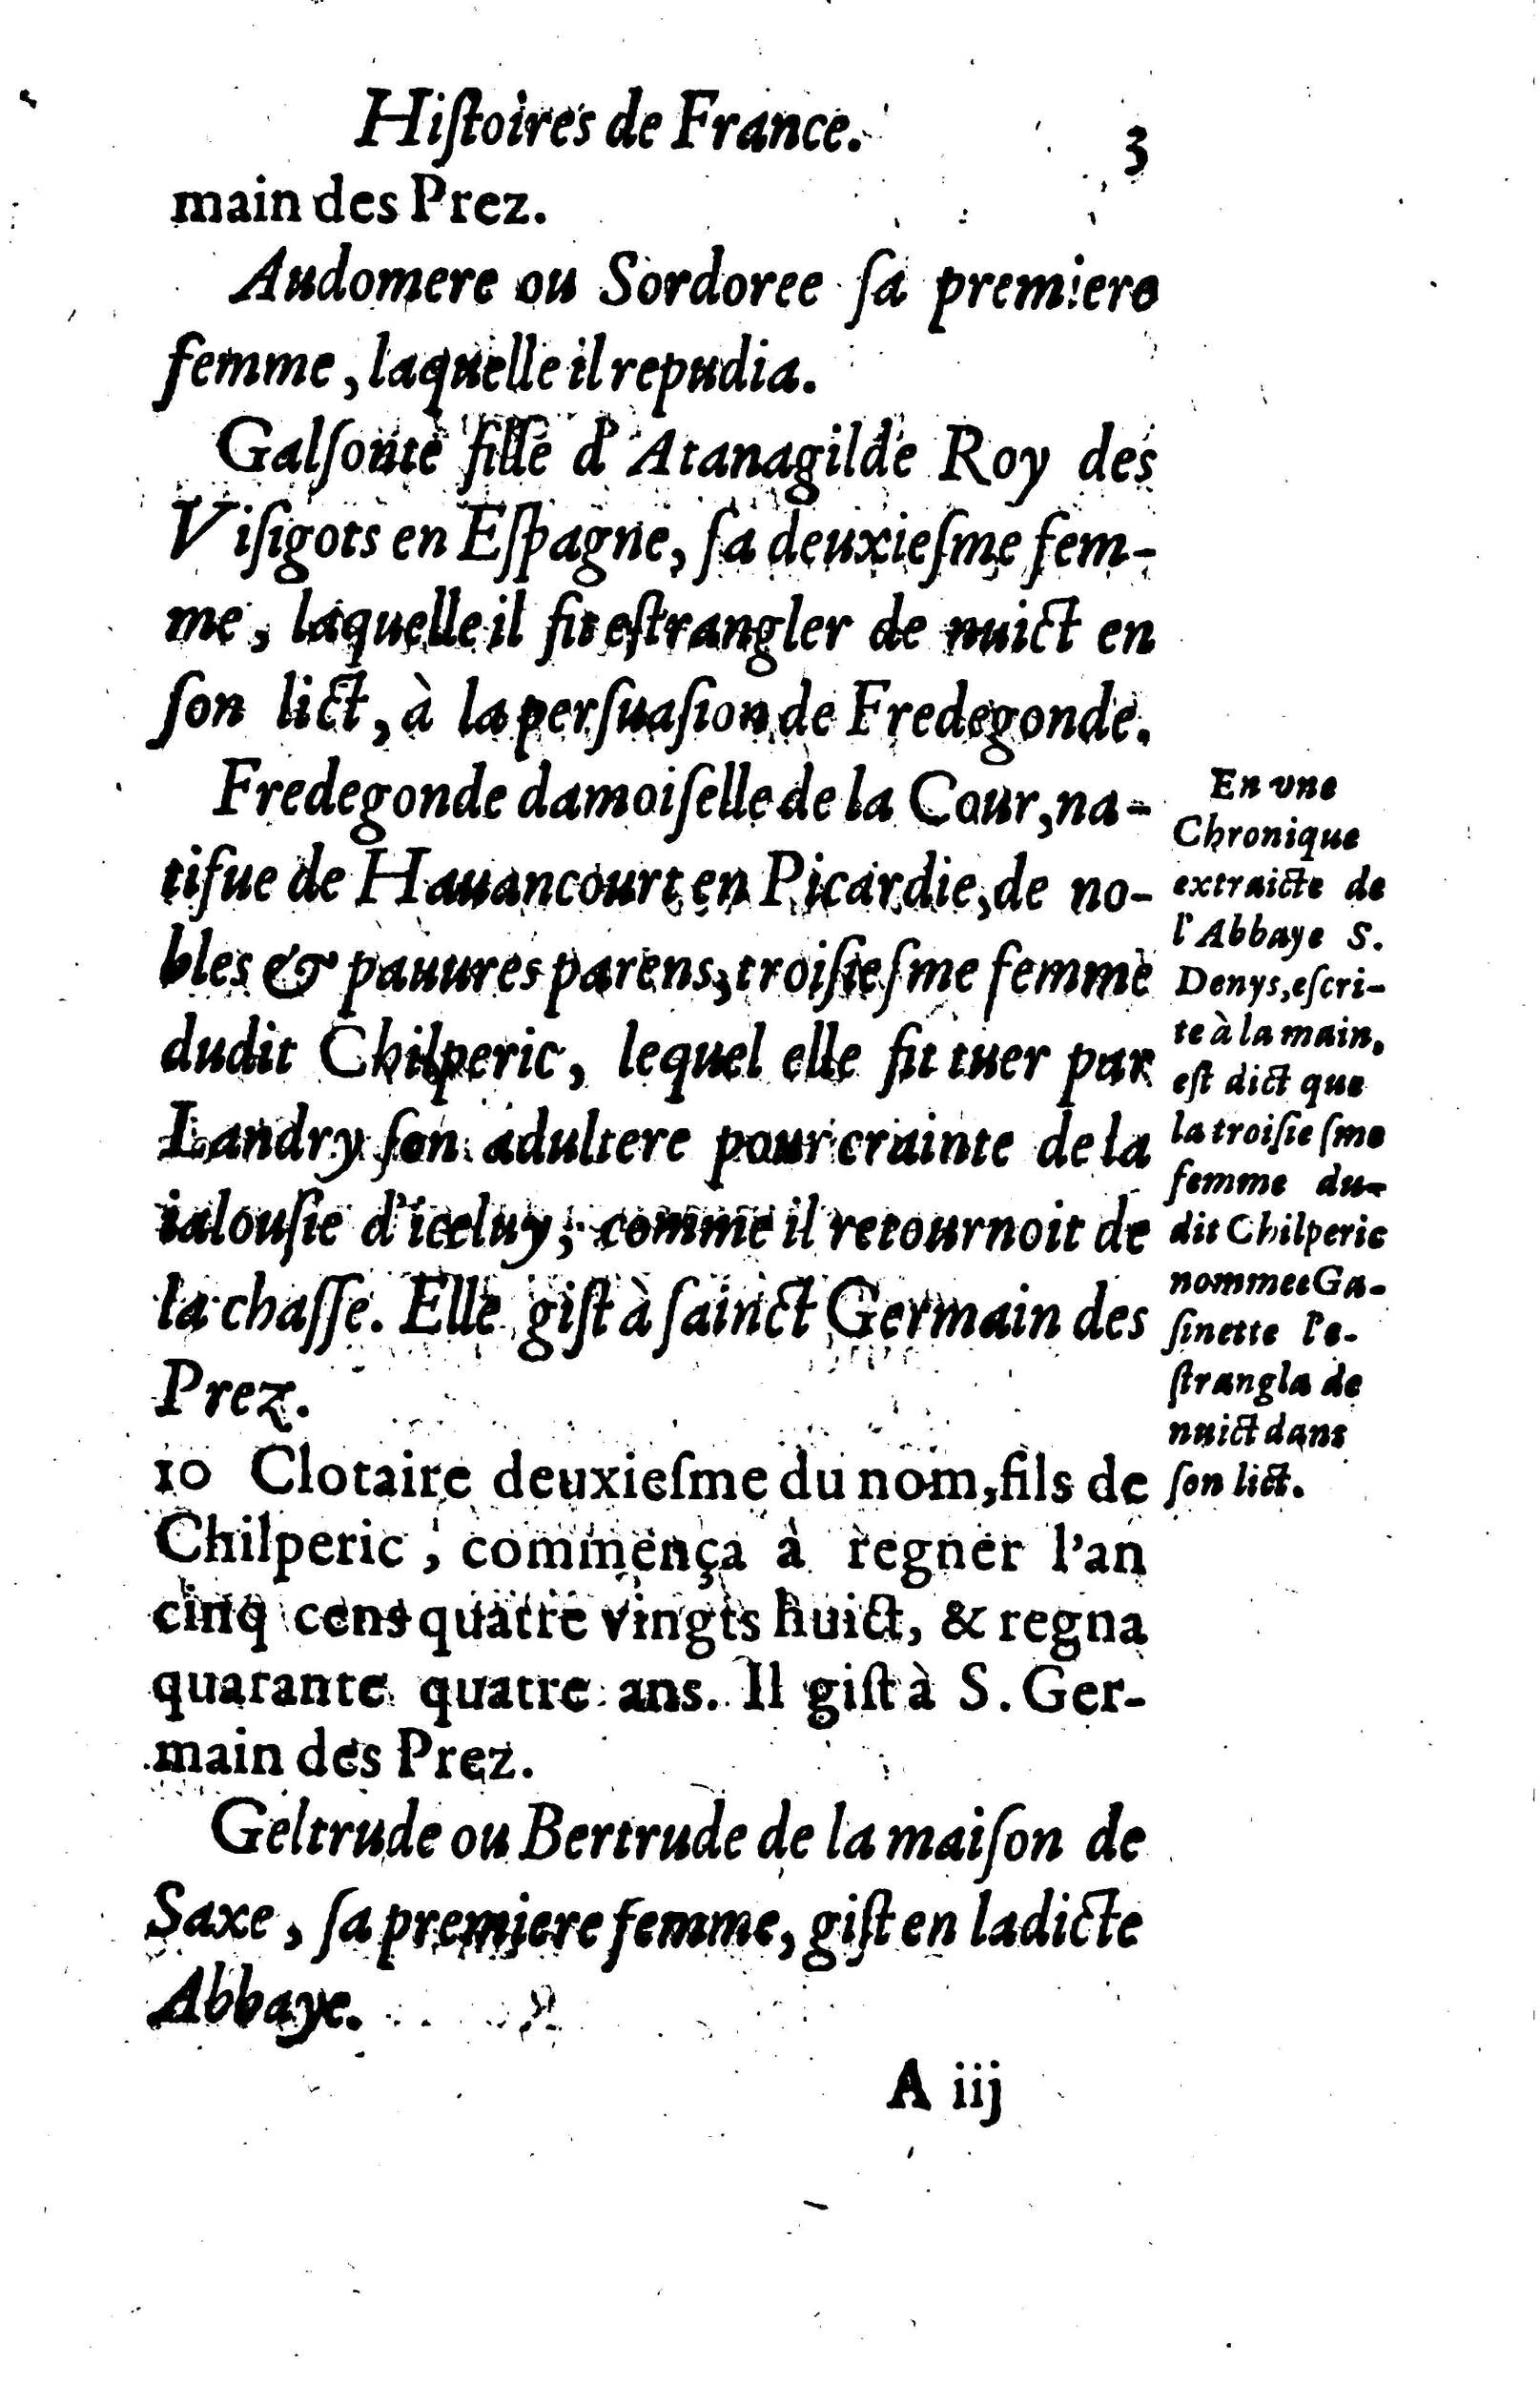 Hiſtoires de France. 3
main des Prez.
Audomere ou Sordoree ſa premiere
femme, laquelle il repudia.
Galſonte fille d'Atanagilde Roy des
Viſigots en Eſpagne, ſa deuxieſme fem-
me, laquelle il fit eſtrangler de nuict en
ſon lict, à la perſuaſion de Fredegonde.
Fredegonde damoiſelle de la Cour, na-
tifue de Hauancourt en Picardie, de no-
bles & pauures parens, troiſieſme femme
dudit Chilperic, lequel elle fit tuer par
Landry ſon adultere pour crainte de la
ialouſie d'iceluy, comme il retournoit de
la chaſſe. Elle giſt à ſainct Germain des
Prez.
10 Clotaire deuxieſme du nom, fils de
Chilperic, commença à regner l'an
cinq cens quatre vingts huict, & regna
quarante quatre ans. Il giſt à S. Ger-
main des Prez.
Geltrude ou Bertrude de la maiſon de
Saxe, ſa premiere femme, giſt en ladicte
Abbaye.
A iij
En vne
Chronique
extraicte de
l'Abbaye S.
Denys, eſcri-
te à la main,
eſt dict que
la troiſieſme
femme du-
dit Chilperic
nommee Ga-
ſinette l'e-
ſtrangla de
nuict dans
ſon lict.